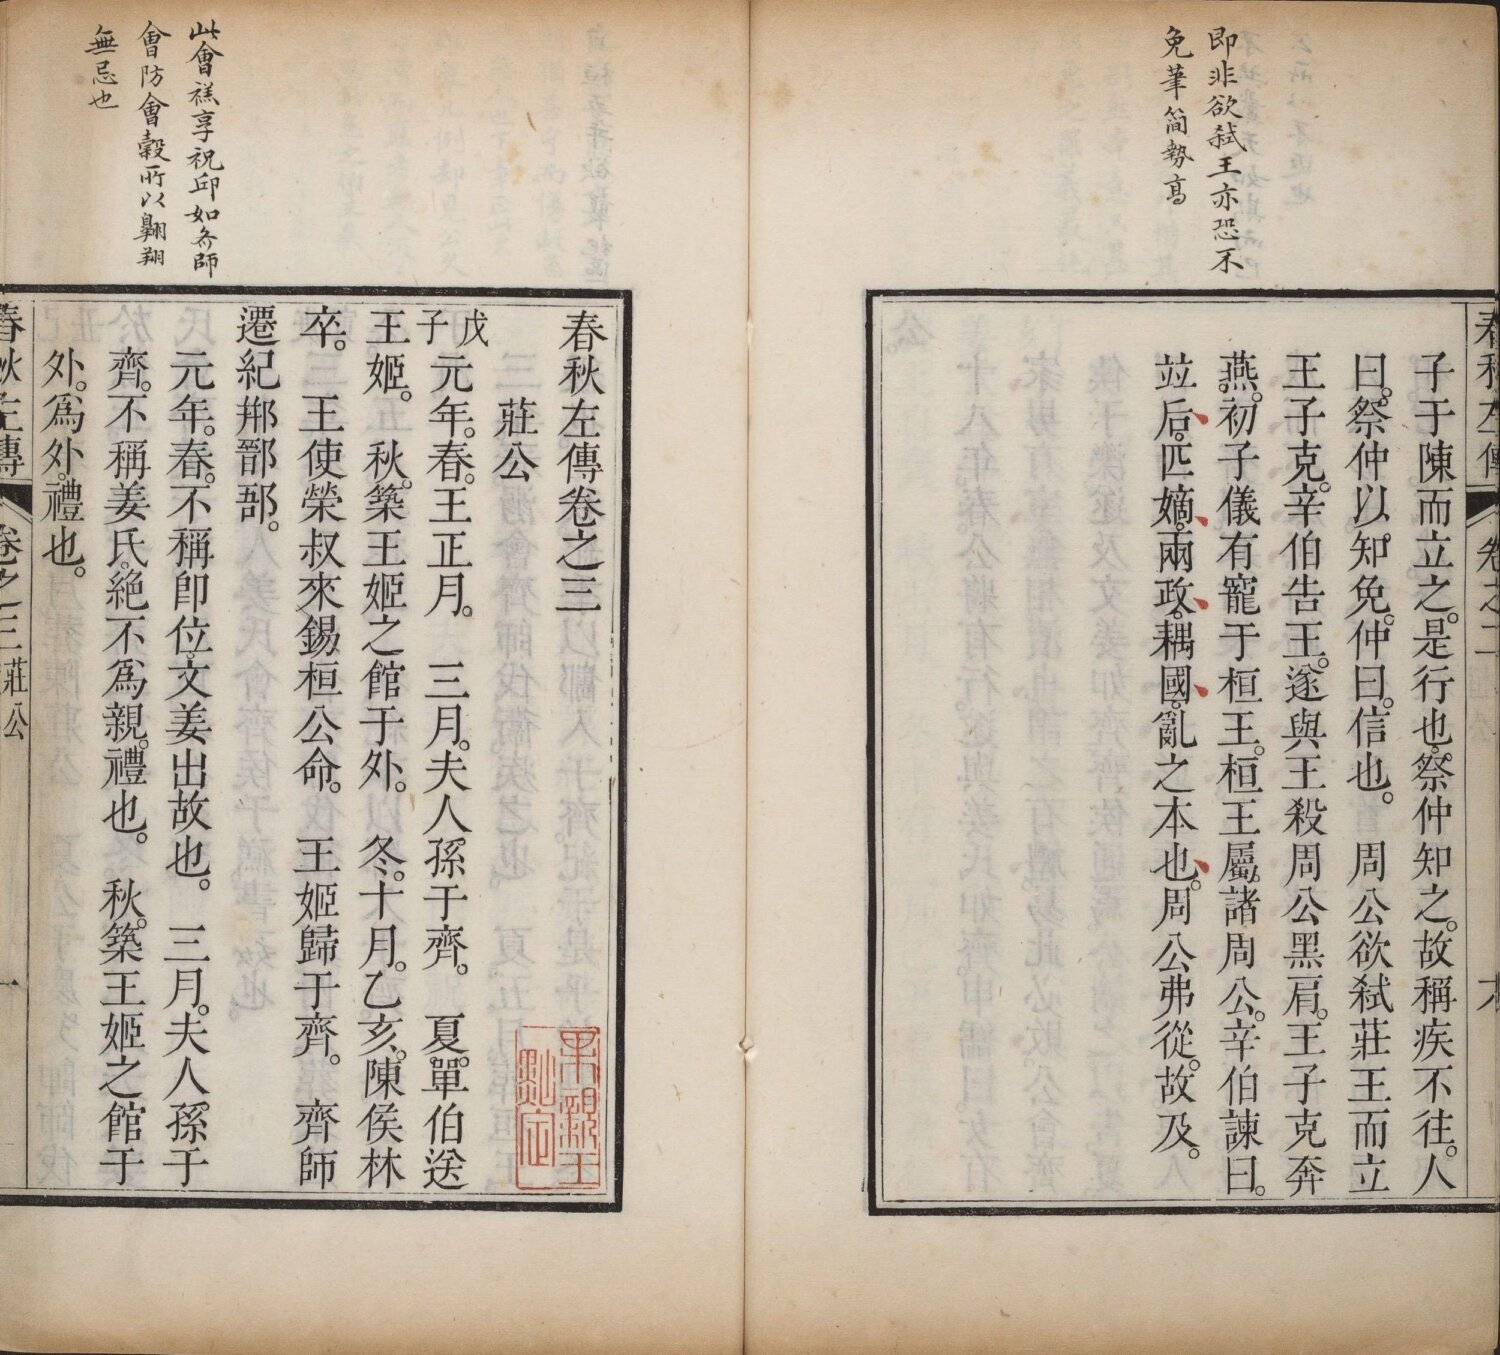 春秋左傳
卷之二
即非欲弑王亦恐不
免筆簡勢高
子于陳而立之。是行也。祭仲知之。故稱疾不往。人
曰。祭仲以知免。仲曰。信也。　周公欲弑莊王而立
王子克。辛伯告王。遂與王殺周公黑肩。王子克奔
燕。初子儀有寵于桓王。桓王屬諸周公。辛伯諫曰。
竝后。匹嫡。兩政。耦國。亂之本也。周公弗從。故及。
此會禚享祝邱如齐師
會防會穀所以翱翔
無忌也
春秋左傳卷之三
莊公
戊子元年。春。王正月。　三月。夫人孫于齊。　夏。單伯送
王姬。　秋。築王姬之館于外。　冬。十月。乙亥。陳侯林
卒。　王使榮叔來錫桓公命。　王姬歸于齊。　齊師
遷紀郱鄑郚。
元年。春。不稱卽位。文姜出故也。　三月。夫人孫于
齊。不稱姜氏。絕不爲親。禮也。　秋。築王姬之館于
外。爲外。禮也。
果親王
點定
春秋左傳
卷之三
莊公
一